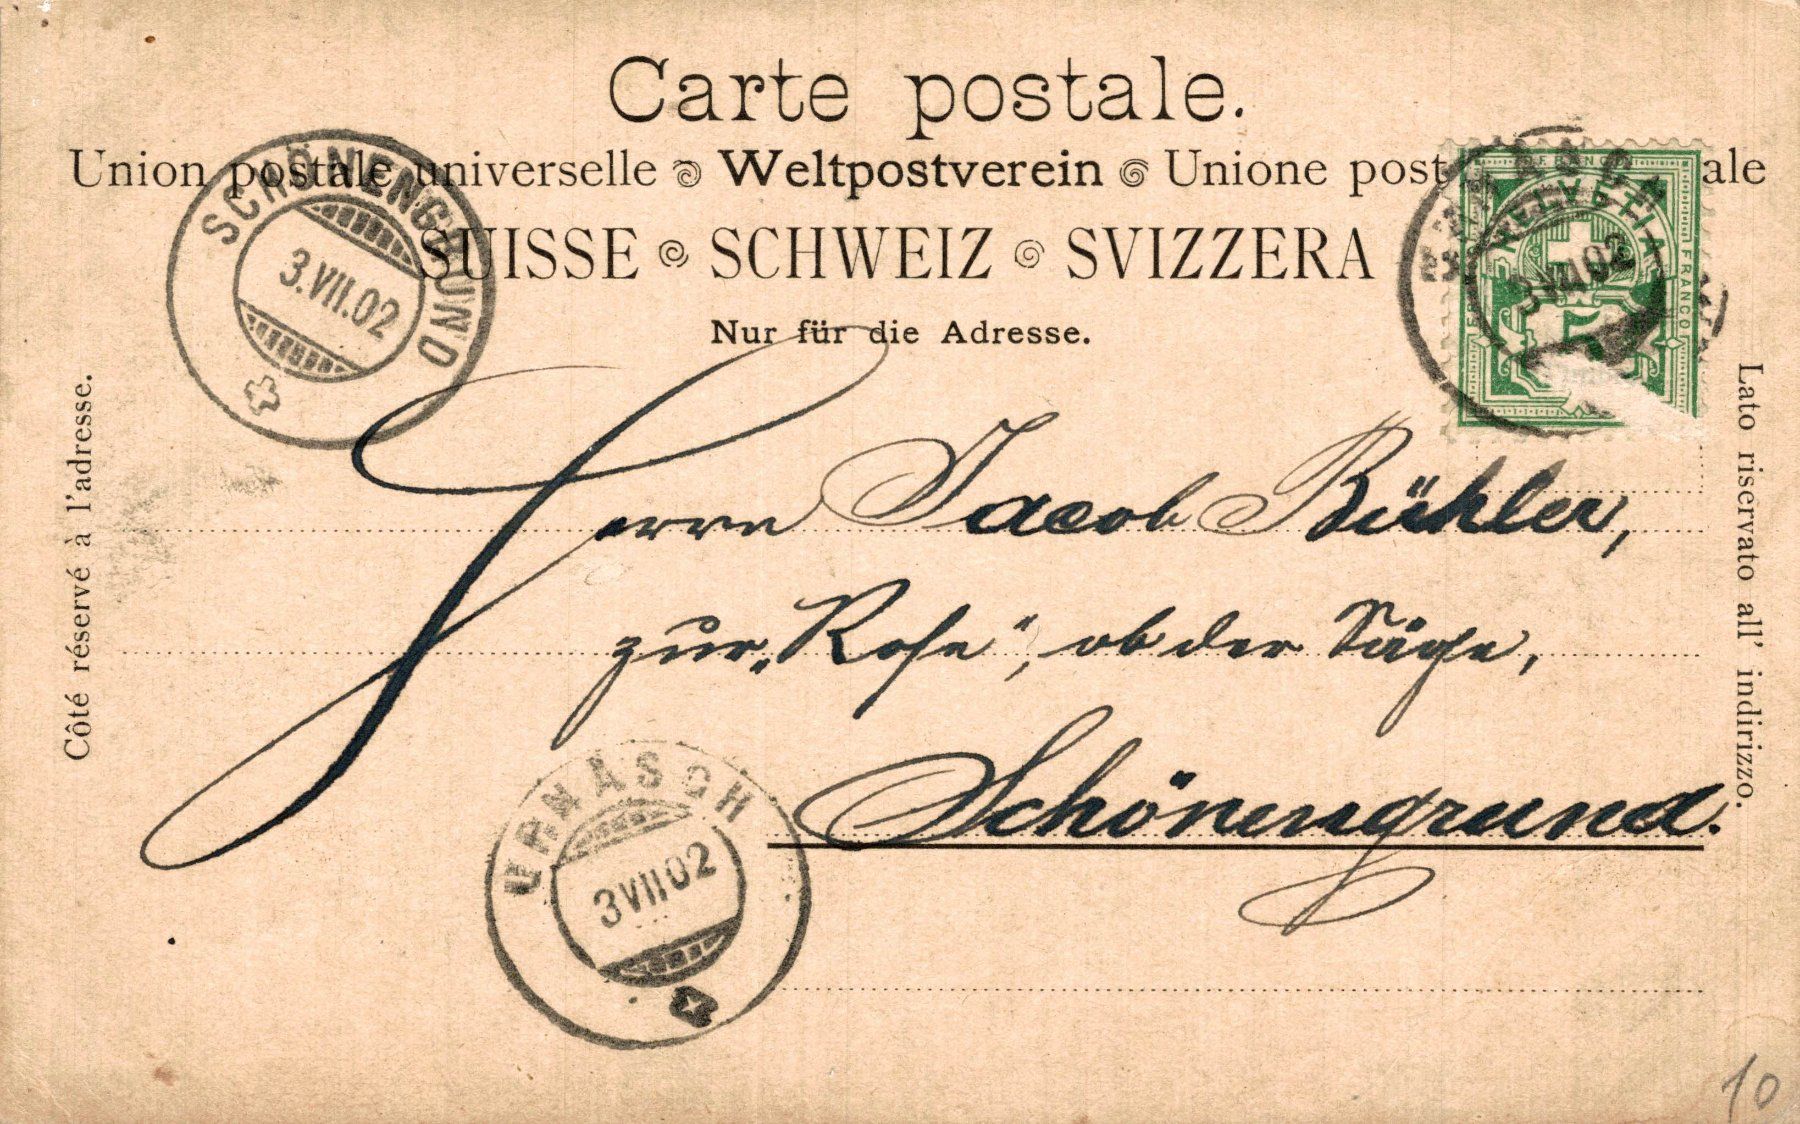 Carte postale.
Union postale universelle Weltpostverein Unione post ale
SUISSE SCHWEIZ SVIZZERA
Nur für die Adresse.
SCHÖNENGRUND
3.VII.02
HELVETIA
FRANCO
5
3 VII 02
Côté réservé à l'adresse.
Lato riservato all' indirizzo.
Herrn Jacob Bühler,
zur „Rose“, ob der Säge,
Schönengrund.
URNÄSCH
3 VII 02
10